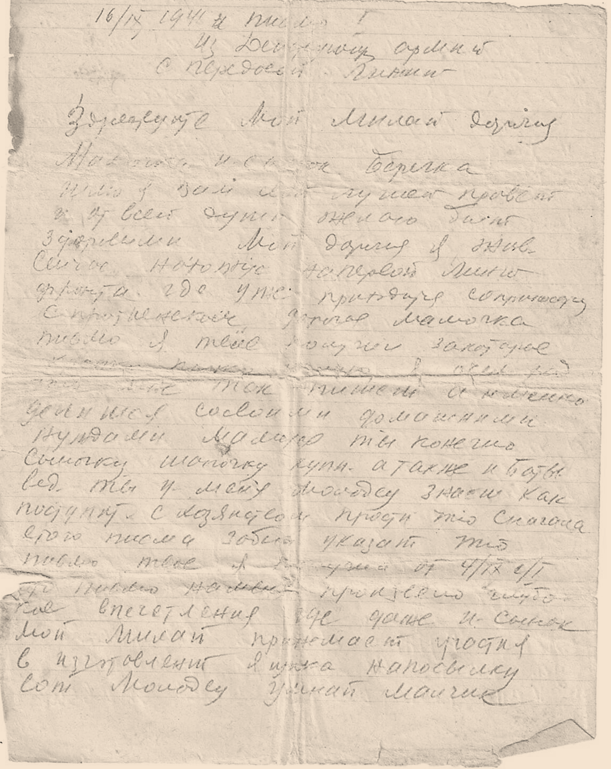 16/IX 1941 г письмо!
Из Действующ армии
с передовой Линии
Здравствуте Мои Милаи дорогия
Мамочка и сынок Боречка
шлю я Вам мой лучшей привет
и от всей души желаю быт
здоровими Мои дорогия я жив
сейчас нахотюс напервой Линии
фронта. где уже приходится
с противником дорогая мамочка
письмо я твое получил закоторое
я очен рад
так пишеш а именно
делишся сосвоими домашними
нуждами Мамочка ты конечно
сыночку шапочку купи а также и Боты
вед. ты у меня Молодец знаеш как
поступит. с хозяйством прости что сначала
етого писма забыл указат что
письмо твое я получил от 4/IX с/г
ето письмо наменя произвело глубо-
кое впечетления где даже и Сынок
мой Милаи принемает участия
в изготовлении ящика напосылку
вот Молодец умнаи малчик